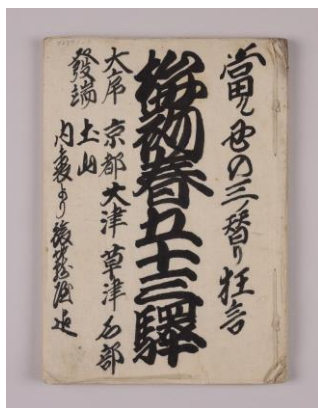 當ル の三替り狂言
梅初春五十三驛
大序 京都 大津 草津 石部
發端 土山
内裏より 迄